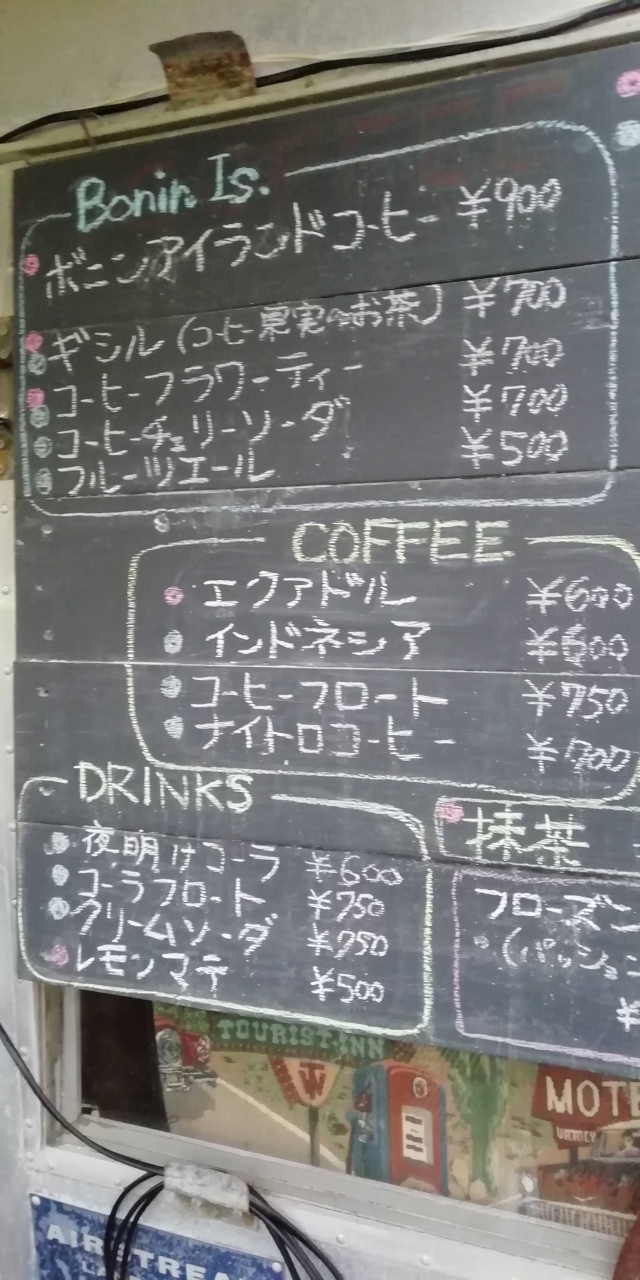 Bonin Is.
ボニンアイランドコーヒー ¥900
ギシル (コーヒー果実のお茶) ¥700
コーヒーフラワーティー ¥700
コーヒーチェリーソーダ ¥700
フルーツエール ¥500
COFFEE
エクアドル ¥600
インドネシア
コーヒーフロート ¥750
ナイトロコーヒー
DRINKS
夜明けコーラ ¥600
コーラフロート ¥750
クリームソーダ ¥750
レモンマテ ¥500
抹茶
フローズン
(パッション
¥
TOURIST INN
MOTE
AIRSTREA